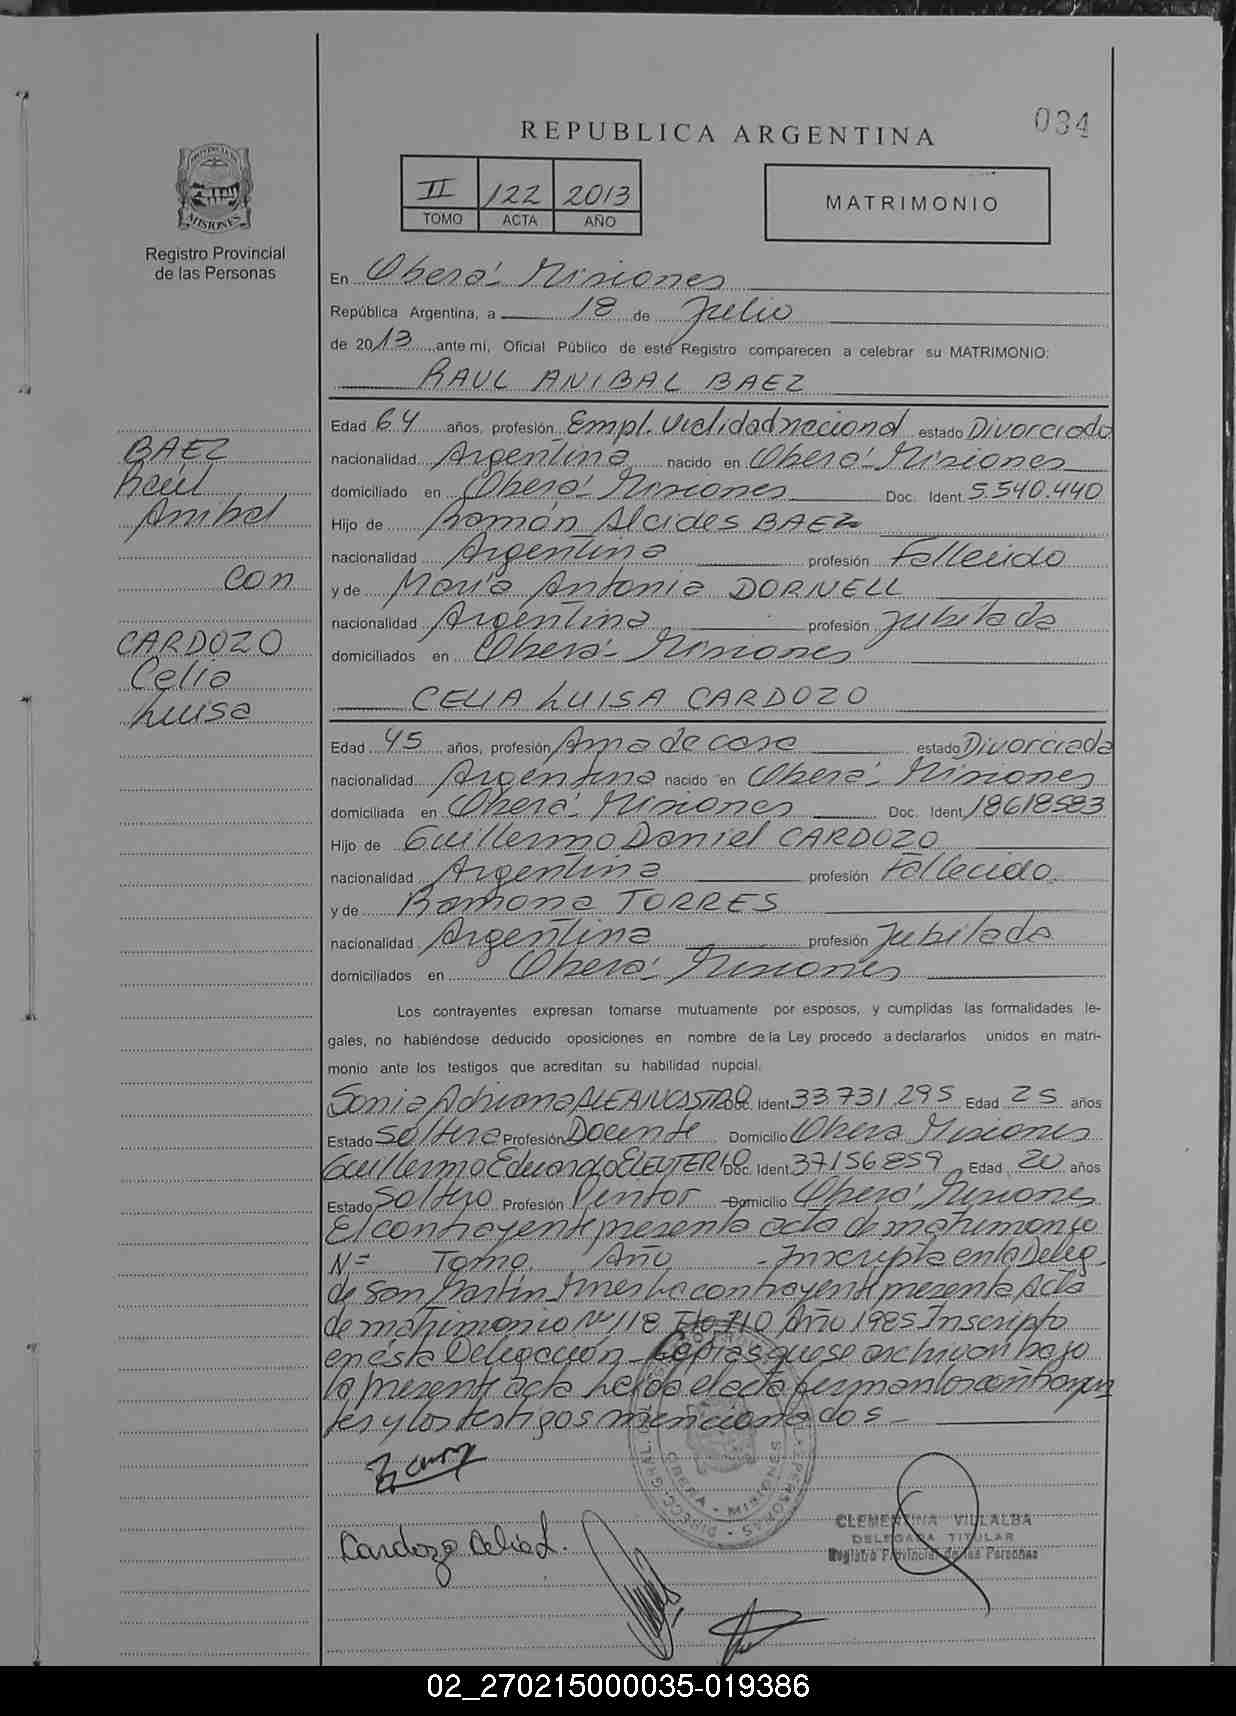 084
REPUBLICA ARGENTINA
II 122 2013
TOMO ACTA AÑO
MATRIMONIO
PROVINCIA DE
MISIONES
Registro Provincial
de las Personas
En Oberá - Misiones
República Argentina, a 18 de Julio
de 2013 ante mi, Oficial Público de este Registro comparecen a celebrar su MATRIMONIO:
RAUL ANIBAL BAEZ
BAEZ
Raúl
Anibal
con
CARDOZO
Celia
Luisa
Edad 64 años, profesión Empl. Vialidad nacional estado Divorciado
nacionalidad Argentina nacido en Oberá - Misiones
domiciliado en Oberá - Misiones Doc. Ident. 5.540.440
Hijo de Román Alcides BAEZ
nacionalidad Argentina profesión Fallecido
y de María Antonia DORNELL
nacionalidad Argentina profesión Jubilada
domiciliados en Oberá - Misiones
CELIA LUISA CARDOZO
Edad 45 años, profesión Ama de casa estado Divorciada
nacionalidad Argentina nacido en Oberá - Misiones
domiciliada en Oberá - Misiones Doc. Ident. 18618583
Hijo de Guillermo Daniel CARDOZO
nacionalidad Argentina profesión Fallecido
y de Ramona TORRES
nacionalidad Argentina profesión Jubilada
domiciliados en Oberá - Misiones
Los contrayentes expresan tomarse mutuamente por esposos, y cumplidas las formalidades le-
gales, no habiéndose deducido oposiciones en nombre de la Ley procedo a declararlos unidos en matri-
monio ante los testigos que acreditan su habilidad nupcial.
Sonia Adriana ALEANCASTRO Doc. Ident. 33.731.295 Edad 25 años
Estado Soltera Profesión Docente Domicilio Oberá Misiones
Guillermo Eduardo ELEUTERIO Doc. Ident. 37156859 Edad 20 años
Estado Soltero Profesión Pintor Domicilio Oberá - Misiones
El contrayente presenta acta de matrimonio
Nº Tomo Año - Inscripta en la Deleg.
de San Martín - Mnes La contrayente presenta Acta
de matrimonio Nº 118 Año 1985 Inscripto
en esta Delegación - Copias que se archivan bajo
la presente acta leida el acta firman los contrayen
tes y los testigos mencionados -
Cardozo Celia L.
DIRECC. GRAL. PERSONAS
OBERA - MISIONES
CLEMENTINA VILLALBA
DELEGADA TITULAR
Registro Provincial de las Personas
02_270215000035-019386